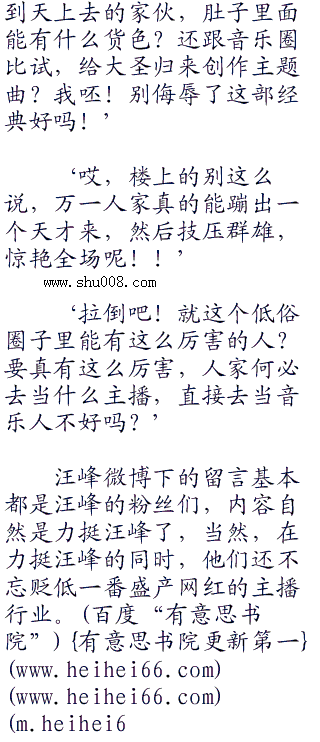 到天上去的家伙，肚子里面
能有什么货色？还跟音乐圈
比试，给大圣归来创作主题
曲？我呸！别侮辱了这部经
典好吗！’
‘哎，楼上的别这么
说，万一人家真的能蹦出一
个天才来，然后技压群雄，
惊艳全场呢！！’
www.shu008.com
‘拉倒吧！就这个低俗
圈子里能有这么厉害的人？
要真有这么厉害，人家何必
去当什么主播，直接去当音
乐人不好吗？’
汪峰微博下的留言基本
都是汪峰的粉丝们，内容自
然是力挺汪峰了，当然，在
力挺汪峰的同时，他们还不
忘贬低一番盛产网红的主播
行业。(百度“有意思书
院”) {有意思书院更新第一}
(www.heihei66.com)
(www.heihei66.com)
(m.heihei6